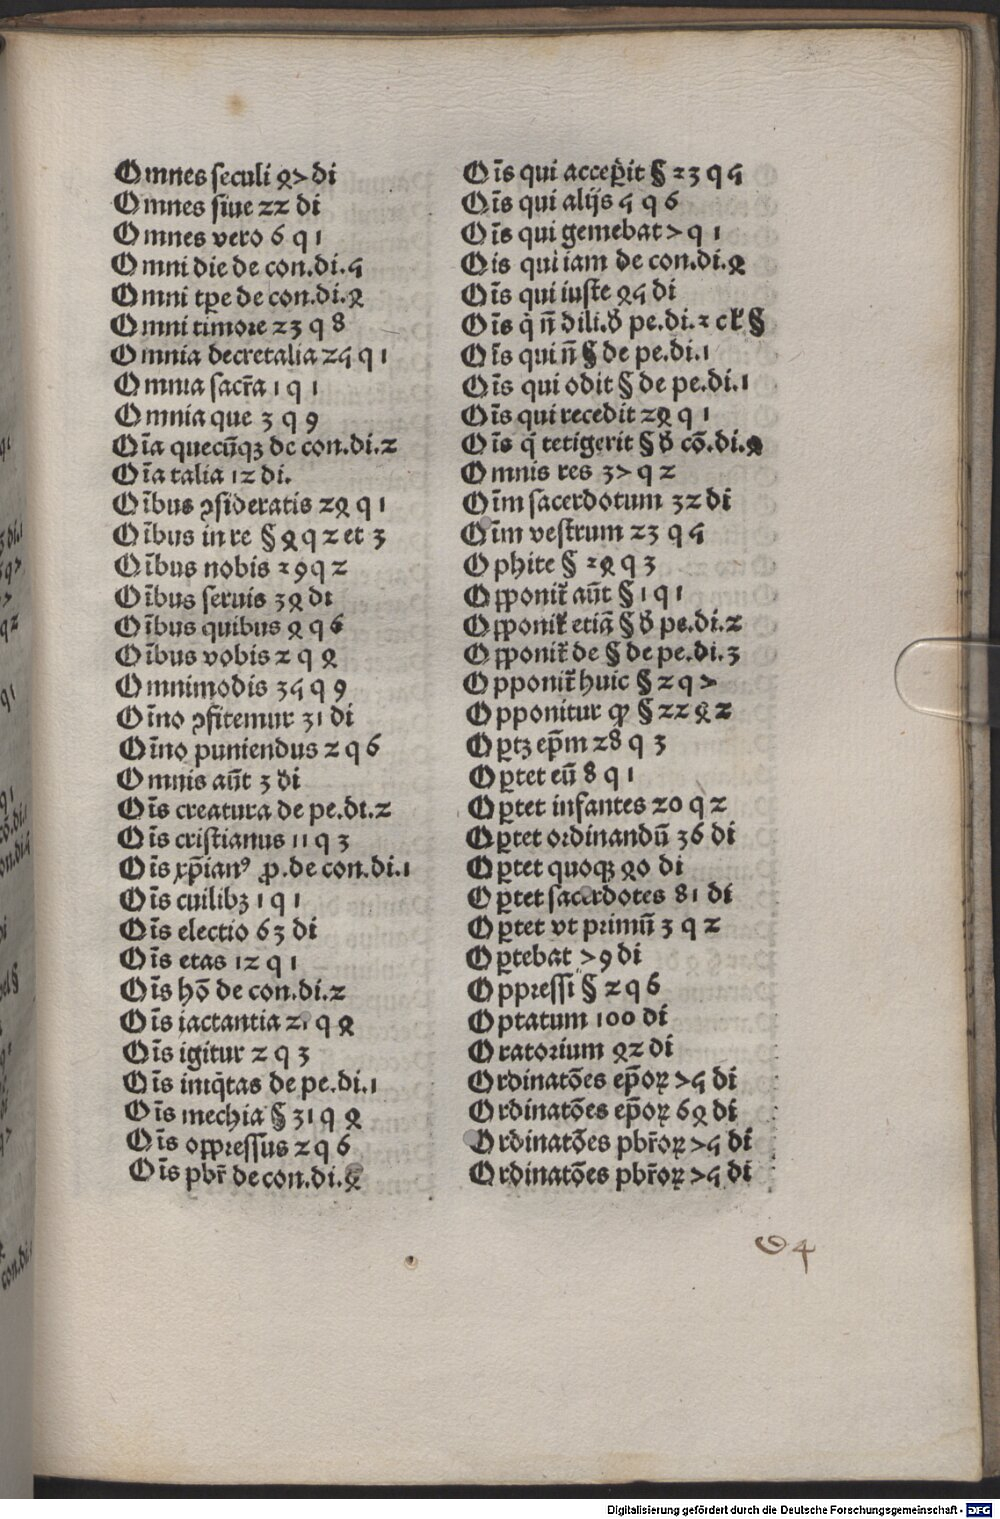 Omnes seculi 47 di
Omnes siue 22 di
Omnes vero 6 q 1
Omni die de con.di.5
Omni tp̄e de con.di.4
Omni timore 23 q 8
Omnia decretalia 25 q 1
Omnia sacr̄a 1 q 1
Omnia que 3 q 9
Oīa quecūqꝫ de con.di.2
Oīa talia 12 di.
Oībus ꝯsideratis 24 q 1
Oībus in re § 4 q 2 et 3
Oībus nobis 29 q 2
Oībus seruis 34 di
Oībus quibus 4 q 6
Oībus vobis 2 q 4
Omnimodis 35 q 9
Oīno ꝯfitemur 31 di
Oīno puniendus 2 q 6
Omnis aūt 3 di
Oīs creatura de pe.di.2
Oīs cristianus 11 q 3
Oīs xp̄ianꝰ ꝓ.de con.di.1
Oīs cuilibꝫ 1 q 1
Oīs electio 63 di
Oīs etas 12 q 1
Oīs hō de con.di.2
Oīs iactantia 21 q 4
Oīs igitur 2 q 3
Oīs iniq̄tas de pe.di.1
Oīs mechia § 31 q 4
Oīs oppressus 2 q 6
Oīs pbr̄ de con.di.4
Oīs qui accep̄it § 23 q 5
Oīs qui alijs 5 q 6
Oīs qui gemebat 7 q 1
Ois qui iam de con.di.4
Oīs qui iuste 45 di
Oīs q̄ n̄ dili.d̄ pe.di.2 ck̄ §
Oīs qui n̄ § de pe.di.1
Oīs qui odit § de pe.di.1
Oīs qui recedit 24 q 1
Oīs q̄ tetigerit § d̄ cō.di.4
Omnis res 37 q 2
Oīm sacerdotum 32 di
Oīm vestrum 23 q 5
Ophite § 24 q 3
Opponit̄ aūt § 1 q 1
Opponit̄ etiā § d̄ pe.di.2
Opponit̄ de § de pe.di.3
Opponit̄ huic § 2 q 7
Opponitur ꝙ § 22 q 2
Oꝑtꝫ ep̄m 28 q 3
Oꝑtet eū 8 q 1
Oꝑtet infantes 20 q 2
Oꝑtet ordinandū 36 di
Oꝑtet quoqꝫ 40 di
Oꝑtet sacerdotes 81 di
Oꝑtet vt primū 3 q 2
Oꝑtebat 79 di
Oppressi § 2 q 6
Optatum 100 di
Oratorium 42 di
Ordinatōes ep̄oꝝ 75 di
Ordinatōes ep̄oꝝ 64 di
Ordinatōes pbr̄oꝝ 75 di
Ordinatōes pbr̄oꝝ 75 di
Digitalisierung gefördert durch die Deutsche Forschungsgemeinschaft - DFG